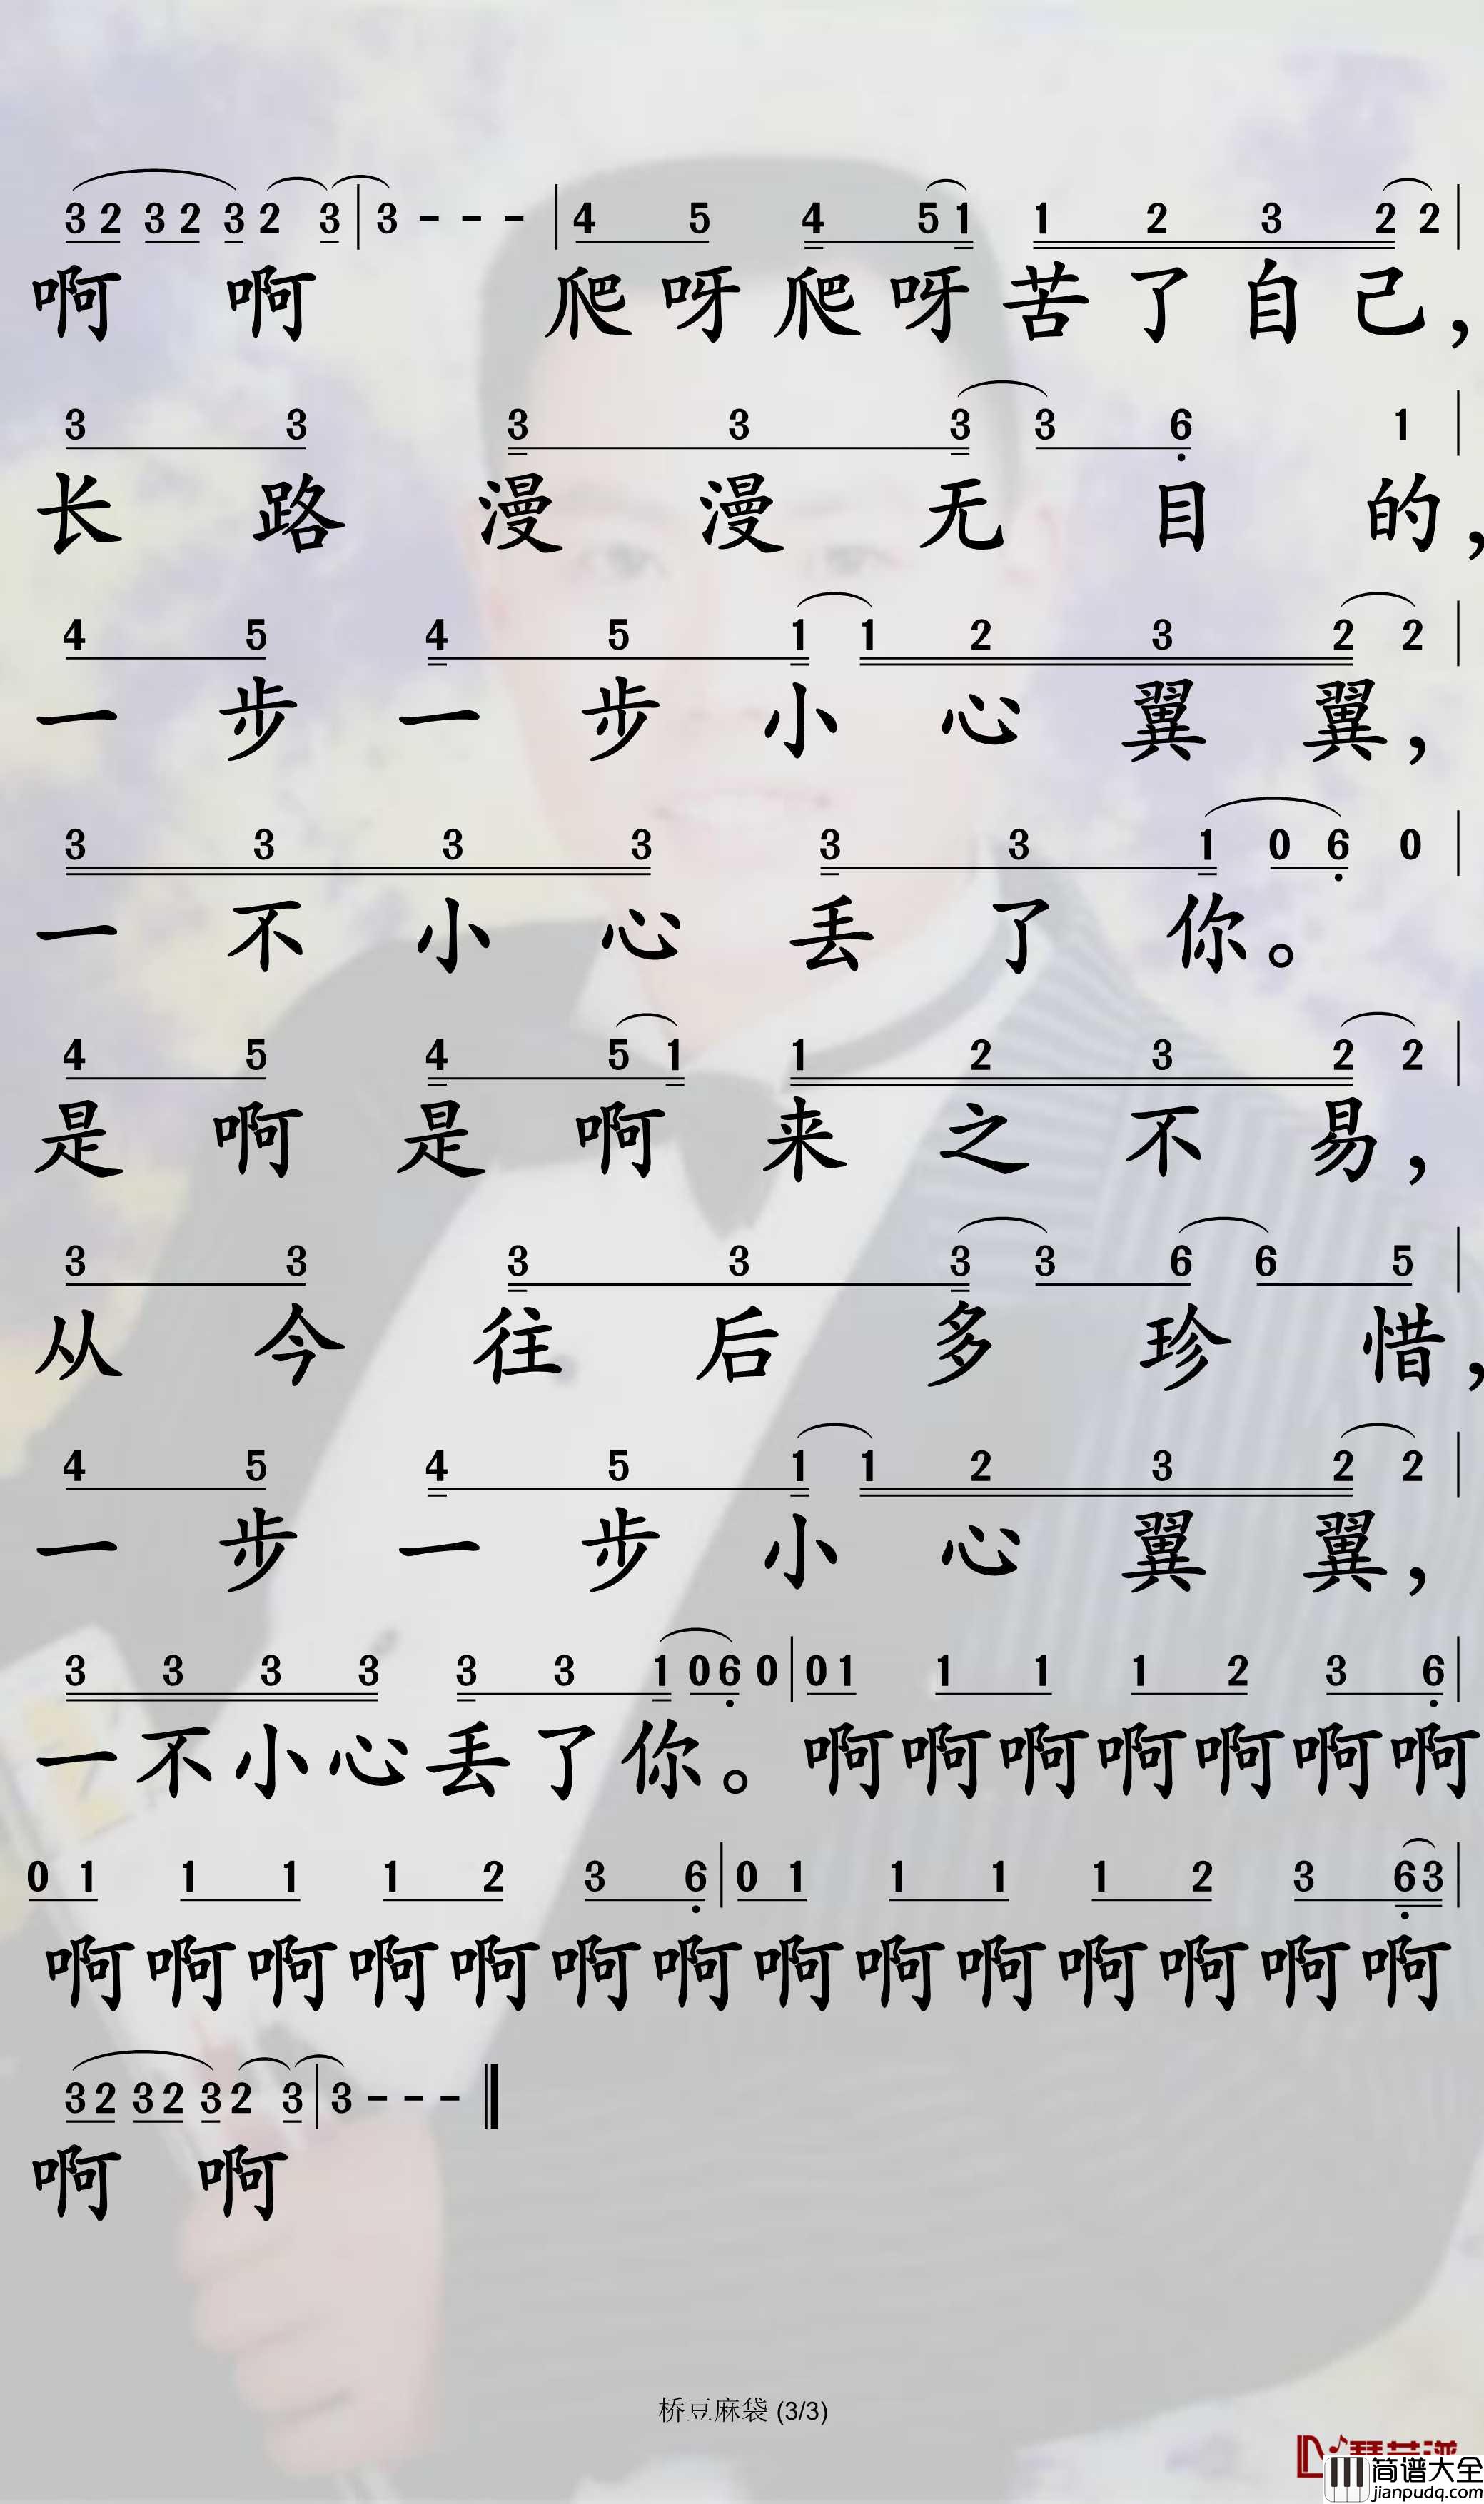 3 2 3 2 3 2 3 | 3 - - - | 4 5 4 5 1 1 2 3 2 2 |
啊 啊 爬 呀 爬 呀 苦 了 自 己,
3 3 3 3 3 3 6 1 |
长 路 漫 漫 无 目 的,
4 5 4 5 1 1 2 3 2 2 |
一 步 一 步 小 心 翼 翼,
3 3 3 3 3 3 1 0 6 0 |
一 不 小 心 丢 了 你。
4 5 4 5 1 1 2 3 2 2 |
是 啊 是 啊 来 之 不 易,
3 3 3 3 3 3 6 6 5 |
从 今 往 后 多 珍 惜,
4 5 4 5 1 1 2 3 2 2 |
一 步 一 步 小 心 翼 翼,
3 3 3 3 3 3 1 0 6 0 | 0 1 1 1 1 2 3 6 |
一 不 小 心 丢 了 你。 啊 啊 啊 啊 啊 啊 啊
0 1 1 1 1 2 3 6 | 0 1 1 1 1 2 3 6 3 |
啊 啊 啊 啊 啊 啊 啊 啊 啊 啊 啊 啊 啊 啊
3 2 3 2 3 2 3 | 3 - - - ‖
啊 啊
桥豆麻袋 (3/3)
简谱大全
jianpudq.com